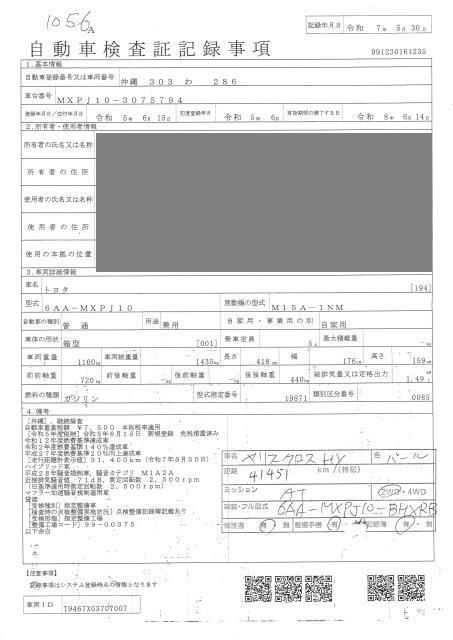 1056A
記録年月日 令和 7年 5月30日
自動車検査証記録事項
991230161235
1.基本情報
自動車登録番号又は車両番号 沖縄 303 わ 286
車台番号 MXPJ10-3075794
登録年月日/交付年月日 令和 5年 6月15日 初度登録年月 令和 5年 6月 有効期間の満了する日 令和 8年 6月14日
2.所有者・使用者情報
所有者の氏名又は名称
所有者の住所
使用者の氏名又は名称
使用者の住所
使用の本拠の位置
3.車両詳細情報
車名 トヨタ [194]
型式 6AA-MXPJ10 原動機の型式 M15A-1NM
自動車の種別 普通 用途 乗用 自家用・事業用の別 自家用
車体の形状 箱型 [001] 乗車定員 5人 最大積載量 -kg
車両重量 1160kg 車両総重量 1435kg 長さ 418cm 幅 176cm 高さ 159cm
前前軸重 720kg 前後軸重 -kg 後前軸重 -kg 後後軸重 440kg 総排気量又は定格出力 1.49L
燃料の種類 ガソリン 型式指定番号 19871 類別区分番号 0085
4.備考
[沖縄],継続検査
自動車重量税額 ¥7,500 本則税率適用
[令和5年度税制]令和5年6月15日 新規登録 免税措置済み
令和12年度燃費基準達成車
令和2年度燃費基準140%達成車
平成27年度燃費基準20%向上達成車
[走行距離計表示値]31,400km(令和7年5月30日)
ハイブリッド車
平成28年騒音規制車,騒音カテゴリ M1A2A
近接排気騒音値:71dB,測定回転数 2,500rpm
(旧基準適用時測定回転数 2,500rpm)
マフラー加速騒音規制適用車
[受検種別]指定整備車
[検査時の点検整備実施状況]点検整備記録簿記載あり
[受検形態]指定整備工場
[整備工場コード]99-00375
以下余白
車名 ヤリスクロスHV 色 パール
距離 41451 km/(特記)
ミッション AT 2WD・4WD
除装・フル型式 6AA-MXPJ10-BHXRB
保証書 有・無 整備手帳 有・無 記録簿 有・無
【注意事項】
記録事項はシステム登録時点の情報となります
車両ID T9467XG3707007